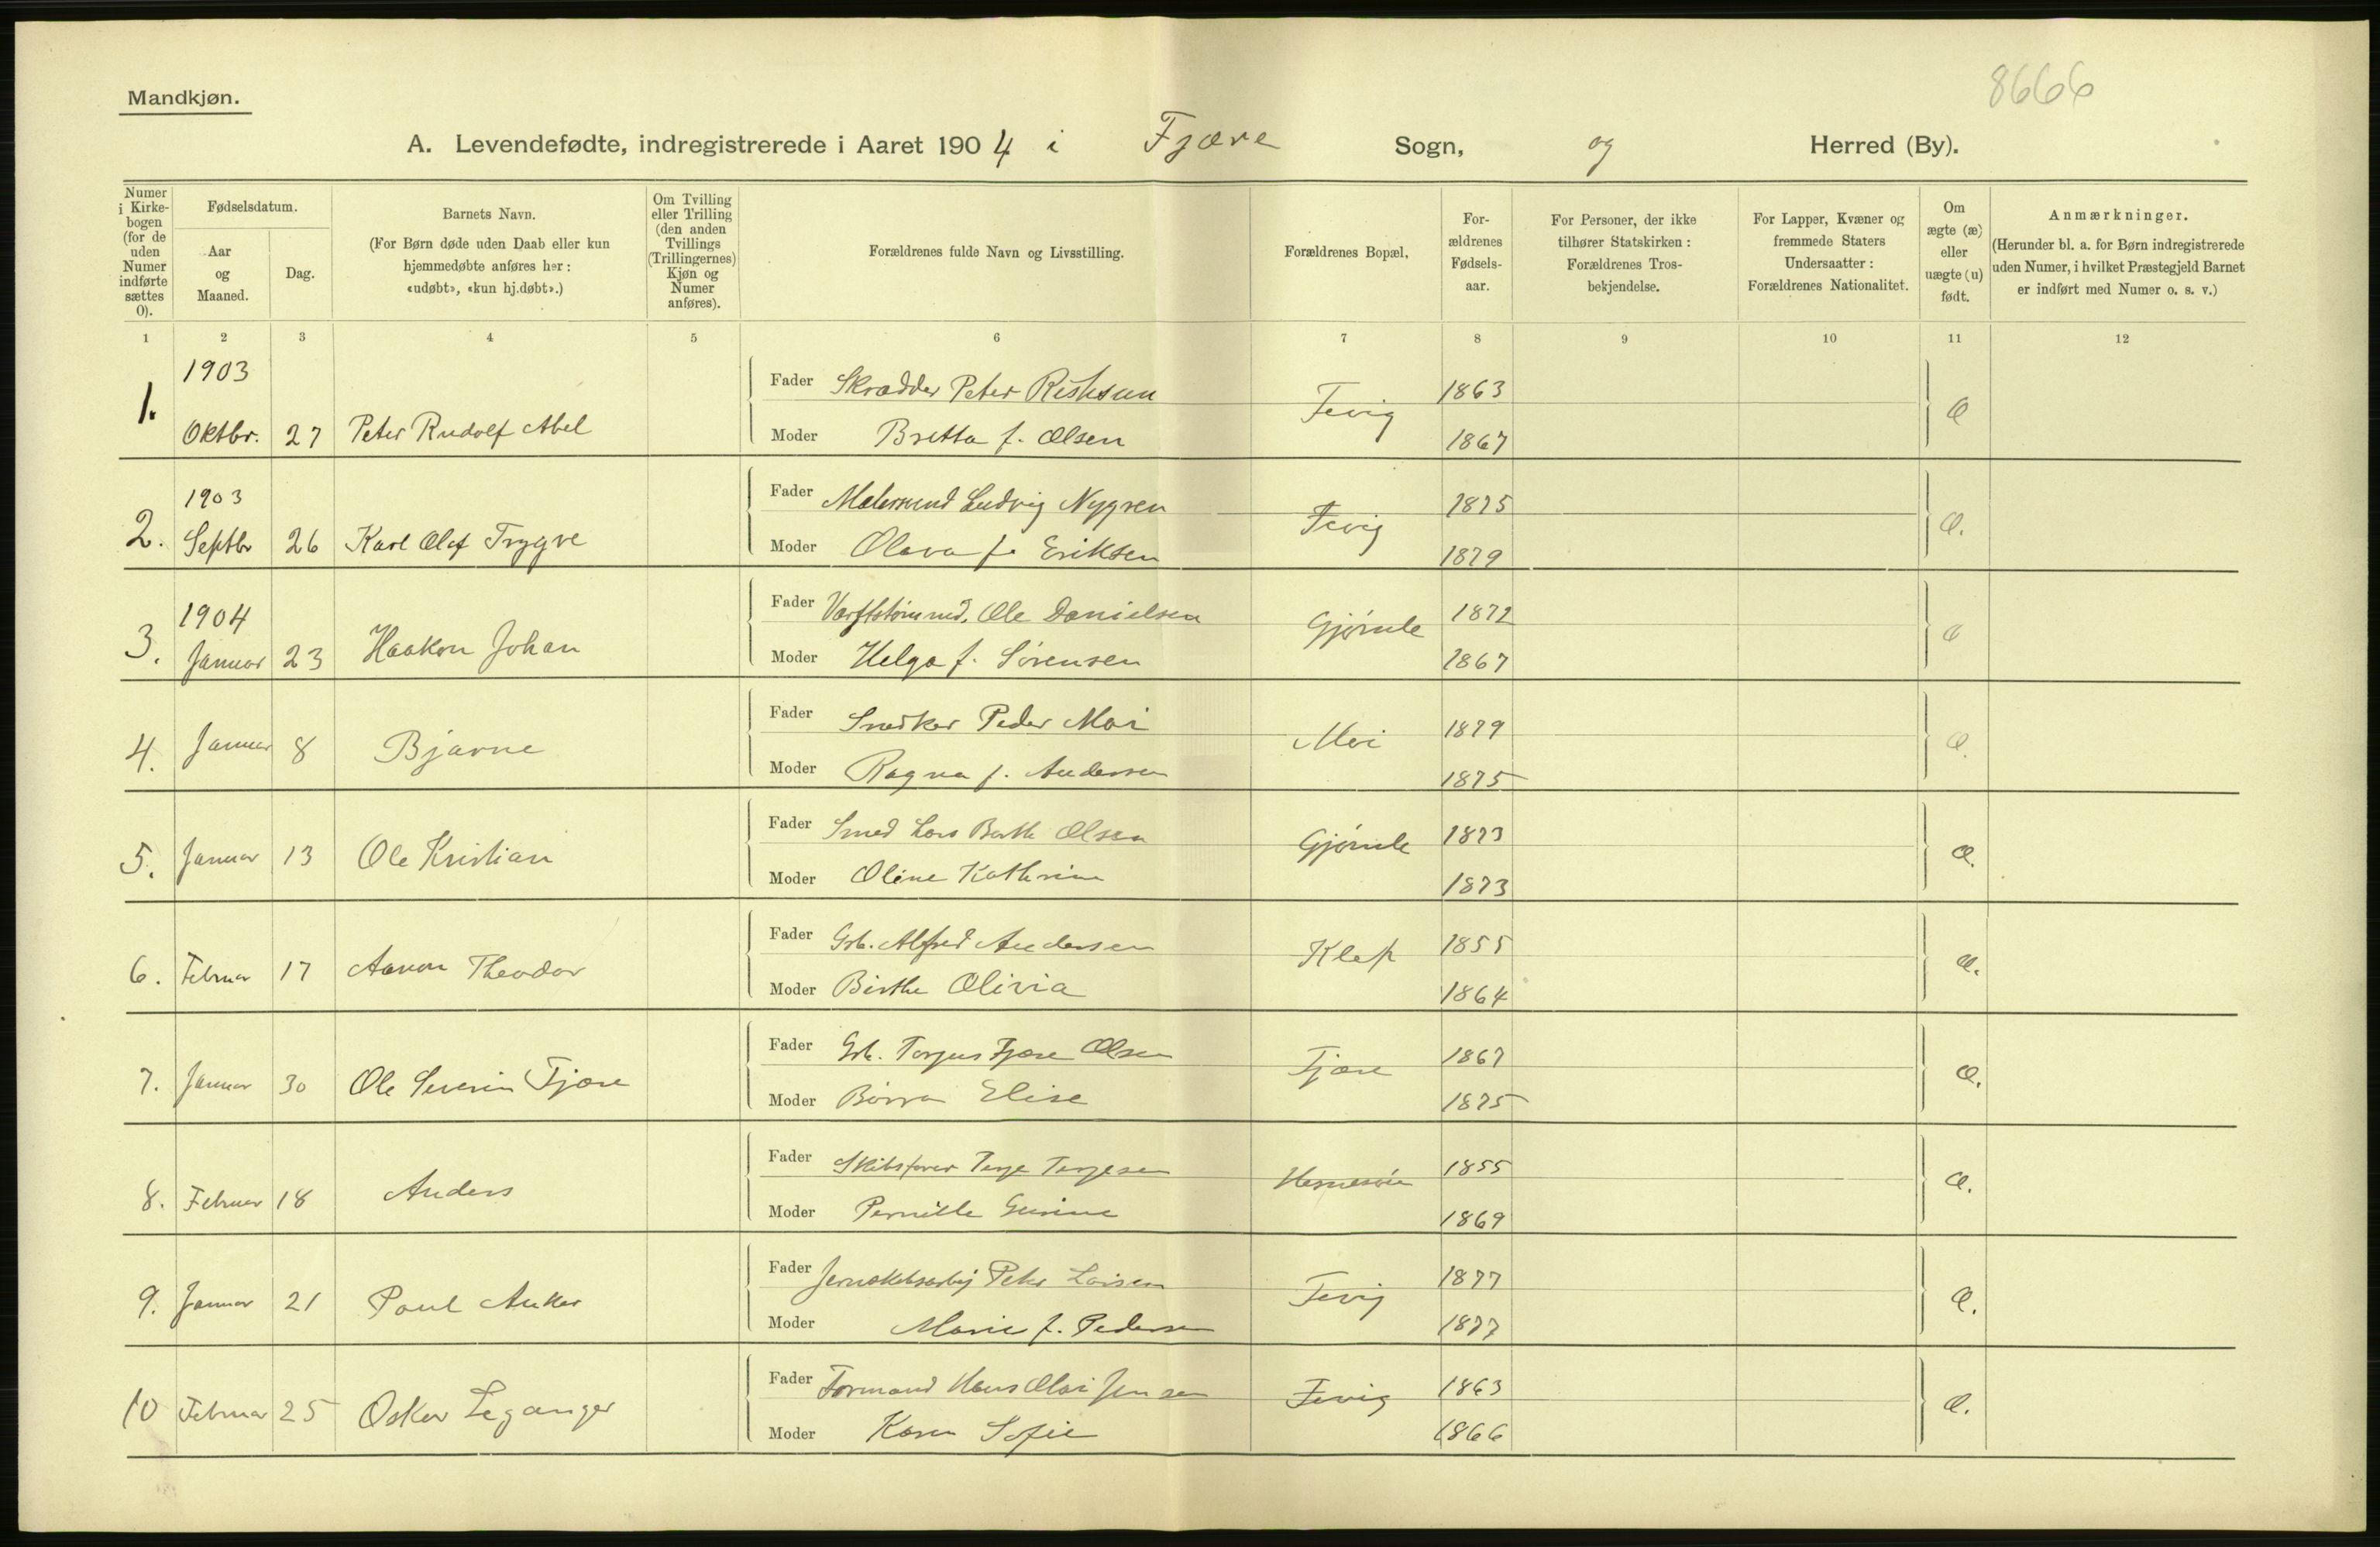 8666
Mandkjøn.
A. Levendefødte, indregistrerede i Aaret 1904 i Fjære Sogn, og Herred (By).
Numer i Kirkebogen (for de uden Numer indførte sættes 0).
Fødselsdatum.
Aar og Maaned.
Dag.
Barnets Navn.
(For Børn døde uden Daab eller kun hjemmedøbte anføres her: «udøbt», «kun hj.døbt».)
Om Tvilling eller Trilling (den anden Tvillings (Trillingernes) Kjøn og Numer anføres).
Forældrenes fulde Navn og Livsstilling.
Forældrenes Bopæl,
For-ældrenes Fødsels-aar.
For Personer, der ikke tilhører Statskirken: Forældrenes Tros-bekjendelse.
For Lapper, Kvæner og fremmede Staters Undersaatter: Forældrenes Nationalitet.
Om ægte (æ) eller uægte (u) født.
Anmærkninger.
(Herunder bl. a. for Børn indregistrerede uden Numer, i hvilket Præstegjeld Barnet er indført med Numer o. s. v.)
1 2 3 4 5 6 7 8 9 10 11 12
1903
Fader Skrædder Peter Fevig 1863 æ
1. Oktbr. 27 Peter Rudolf Abel
Moder Bretta f. Olsen 1867
1903
Fader Malersvend Ludvig Nygren Fevig 1875 æ.
2. Septbr 26 Karl Olaf Trygve
Moder Olava f. Eriksen 1879
1904
Fader Ole Danielsen Gjømle 1872 æ
3. Januar 23 Haakon Johan
Moder Helga f. Sørensen 1867
Fader Snedker Peder Moi Moi 1879 æ.
4. Januar 8 Bjarne
Moder Ragna f. Andersen 1875
Fader Smed Lars Olsen Gjømle 1873 æ.
5. Januar 13 Ole Kristian
Moder Oline Kathrine 1873
Fader Grb. Alfred Andersen Klep 1855 æ.
6. Februar 17 Aanon Theodor
Moder Birthe Olivia 1864
Fader Grb. Torjus Fjære Olsen Fjære 1867 æ.
7. Januar 30 Ole Severin Fjære
Moder Elise 1875
Fader Skibsfører Terje Terjesen Hesnesøen 1855 æ.
8. Februar 18 Anders
Moder Pernille 1869
Fader Jernskibsarbj Peter Larsen Fevig 1877 æ.
9. Januar 21 Paul Anker
Moder Marie f. Pedersen 1877
Fader Formand Hans Olai Jensen Fevig 1863 æ.
10 Februar 25 Oskar Leganger
Moder Karen Sofie 1866